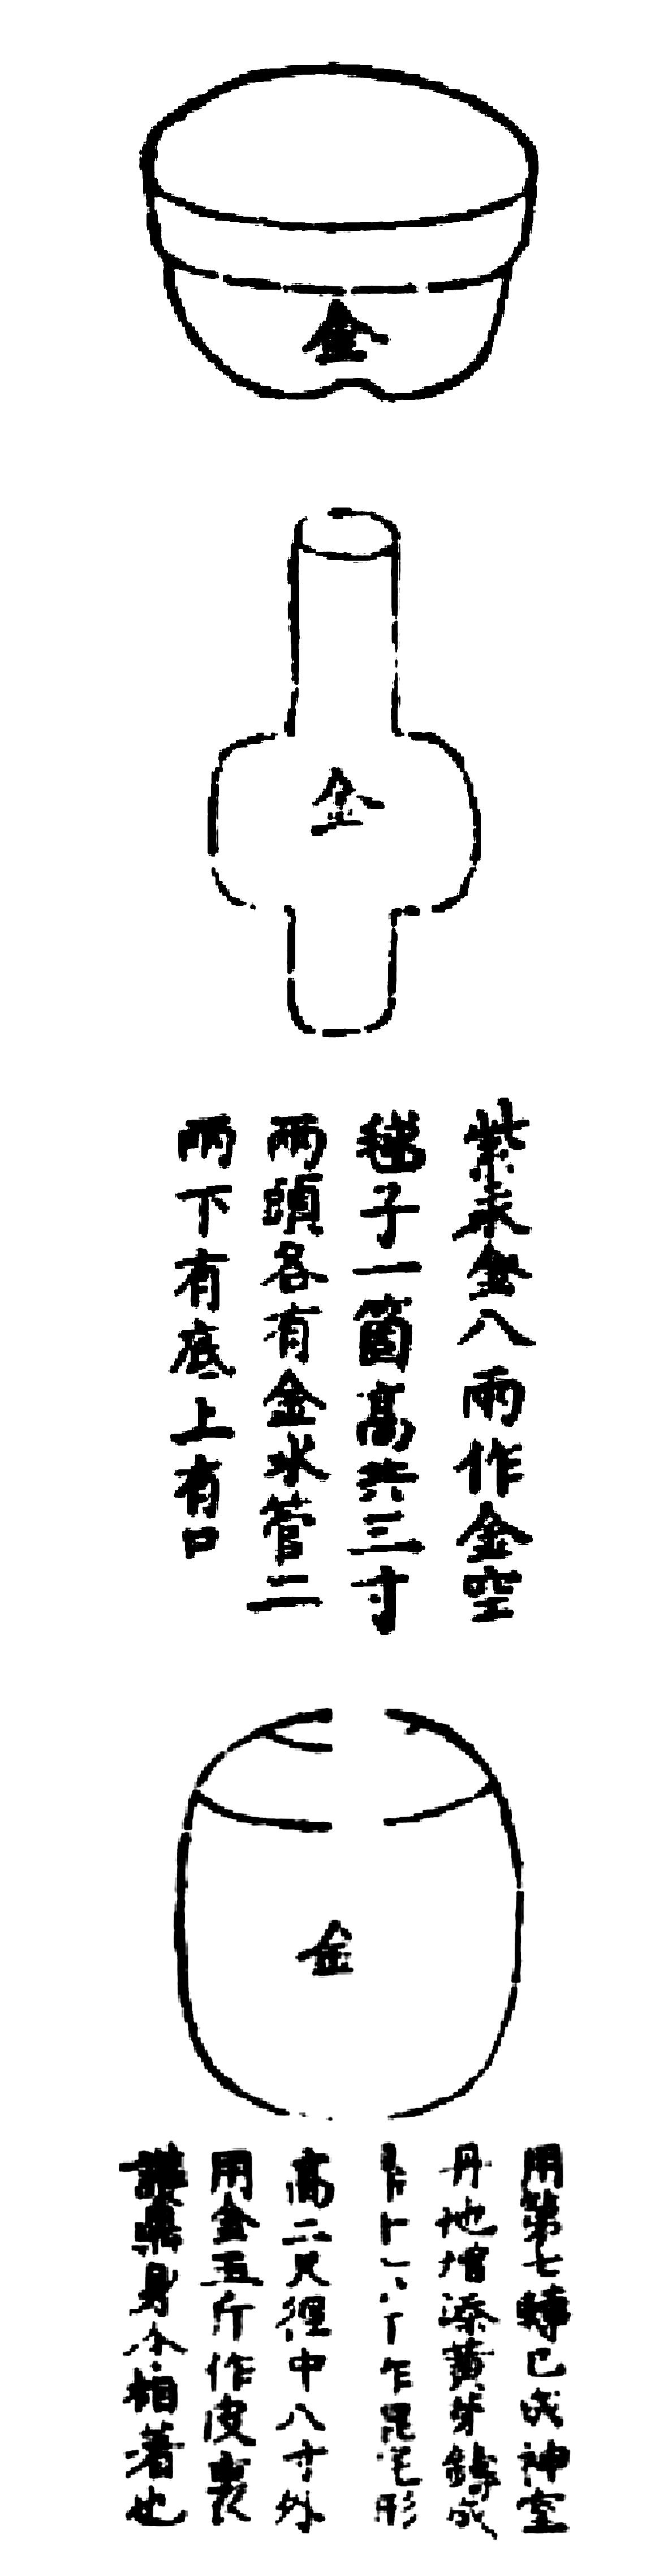 金
金
紫汞金八兩作金空
毬子一箇高共三寸
兩頭各有金水管二
兩下有底上有口
金
用第七轉已成神室
丹地增添黃芽鑄成
作混沌形
高二尺徑中八寸外
用金五斤作皮裹
護鼎身不相著也